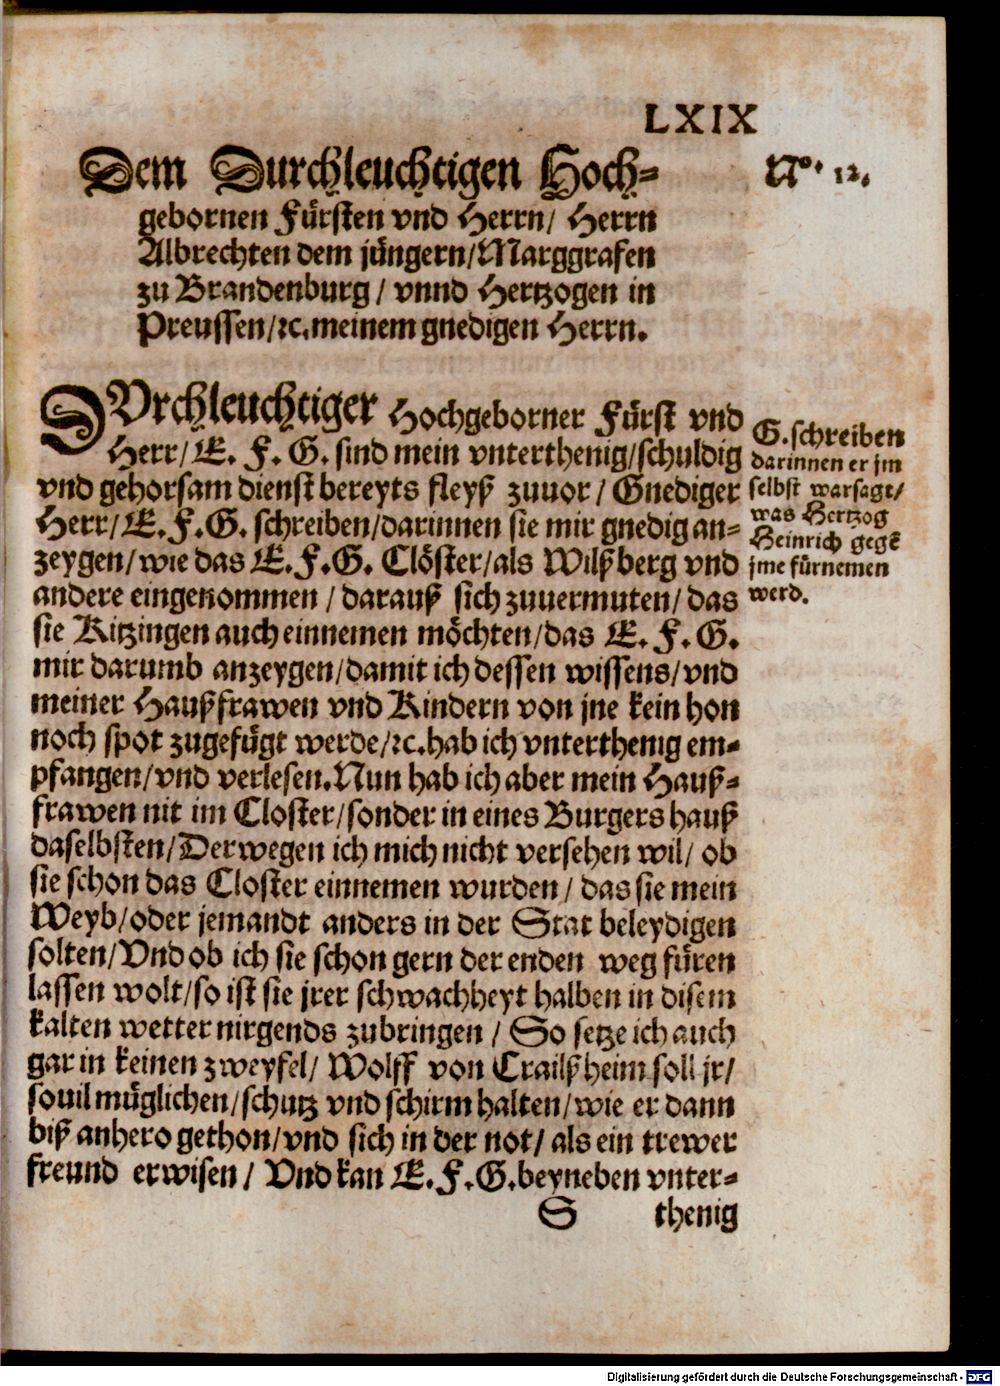 LXIX
Dem Durchleuchtigen Hoch-
Nᵒ. 12.
gebornen Fürsten vnd Herrn/ Herrn
Albrechten dem jüngern/Marggrafen
zu Brandenburg/ vnnd Hertzogen in
Preussen/ꝛc.meinem gnedigen Herrn.
DVrchleuchtiger Hochgeborner Fürst vnd
Herr/ E. F. G. sind mein vnterthenig/schuldig
vnd gehorsam dienst bereyts fleyß zuuor/ Gnediger
Herr/ E.F.G. schreiben/darinnen sie mir gnedig an-
zeygen/wie das E.F.G. Clöster/als Wilßberg vnd
andere eingenommen/darauß sich zuuermuten/das
sie Kitzingen auch einnemen möchten/das E. F. G.
mir darumb anzeygen/damit ich dessen wissens/vnd
meiner Haußfrawen vnd Kindern von jne kein hon
noch spot zugefügt werde/ꝛc.hab ich vnterthenig em-
pfangen/vnd verlesen.Nun hab ich aber mein Hauß-
frawen nit im Closter/sonder in eines Burgers hauß
daselbsten/Derwegen ich mich nicht versehen wil/ ob
sie schon das Closter einnemen wurden/ das sie mein
Weyb/oder jemandt anders in der Stat beleydigen
solten/Vnd ob ich sie schon gern der enden weg füren
lassen wolt/so ist sie jrer schwachheyt halben in disem
kalten wetter nirgends zubringen/ So setze ich auch
gar in keinen zweyfel/ Wolff von Crailßheim soll jr/
souil müglichen/schutz vnd schirm halten/wie er dann
biß anhero gethon/vnd sich in der not/ als ein trewer
freund erwisen/ Vnd kan E.F.G.beyneben vnter-
S thenig
G.schreiben
darinnen er jm
selbst warsagt/
was Hertzog
Heinrich gegē
jme fürnemen
werd.
Digitalisierung gefördert durch die Deutsche Forschungsgemeinschaft - DFG